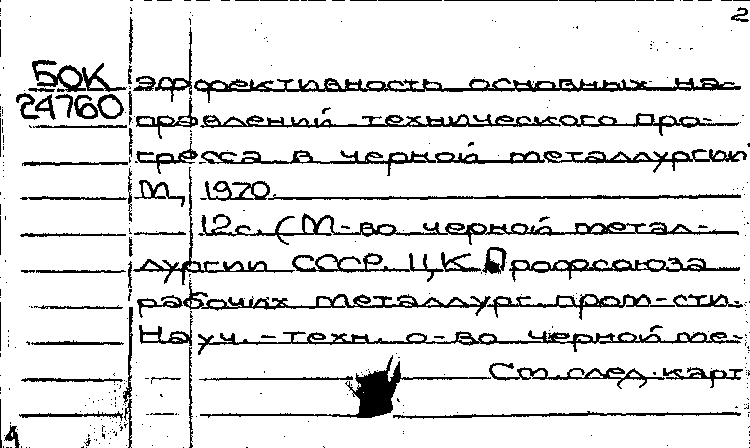 2
БОК эффективность основных на-
24760 правлений технического про-
гресса в черной металлургии
М, 1970.
12с. (М-во черной метал-
лургии СССР. ЦК Профсоюза
рабочих металлург. пром-сти.
Науч.-техн. о-во черной ме-
См.след.карт
4